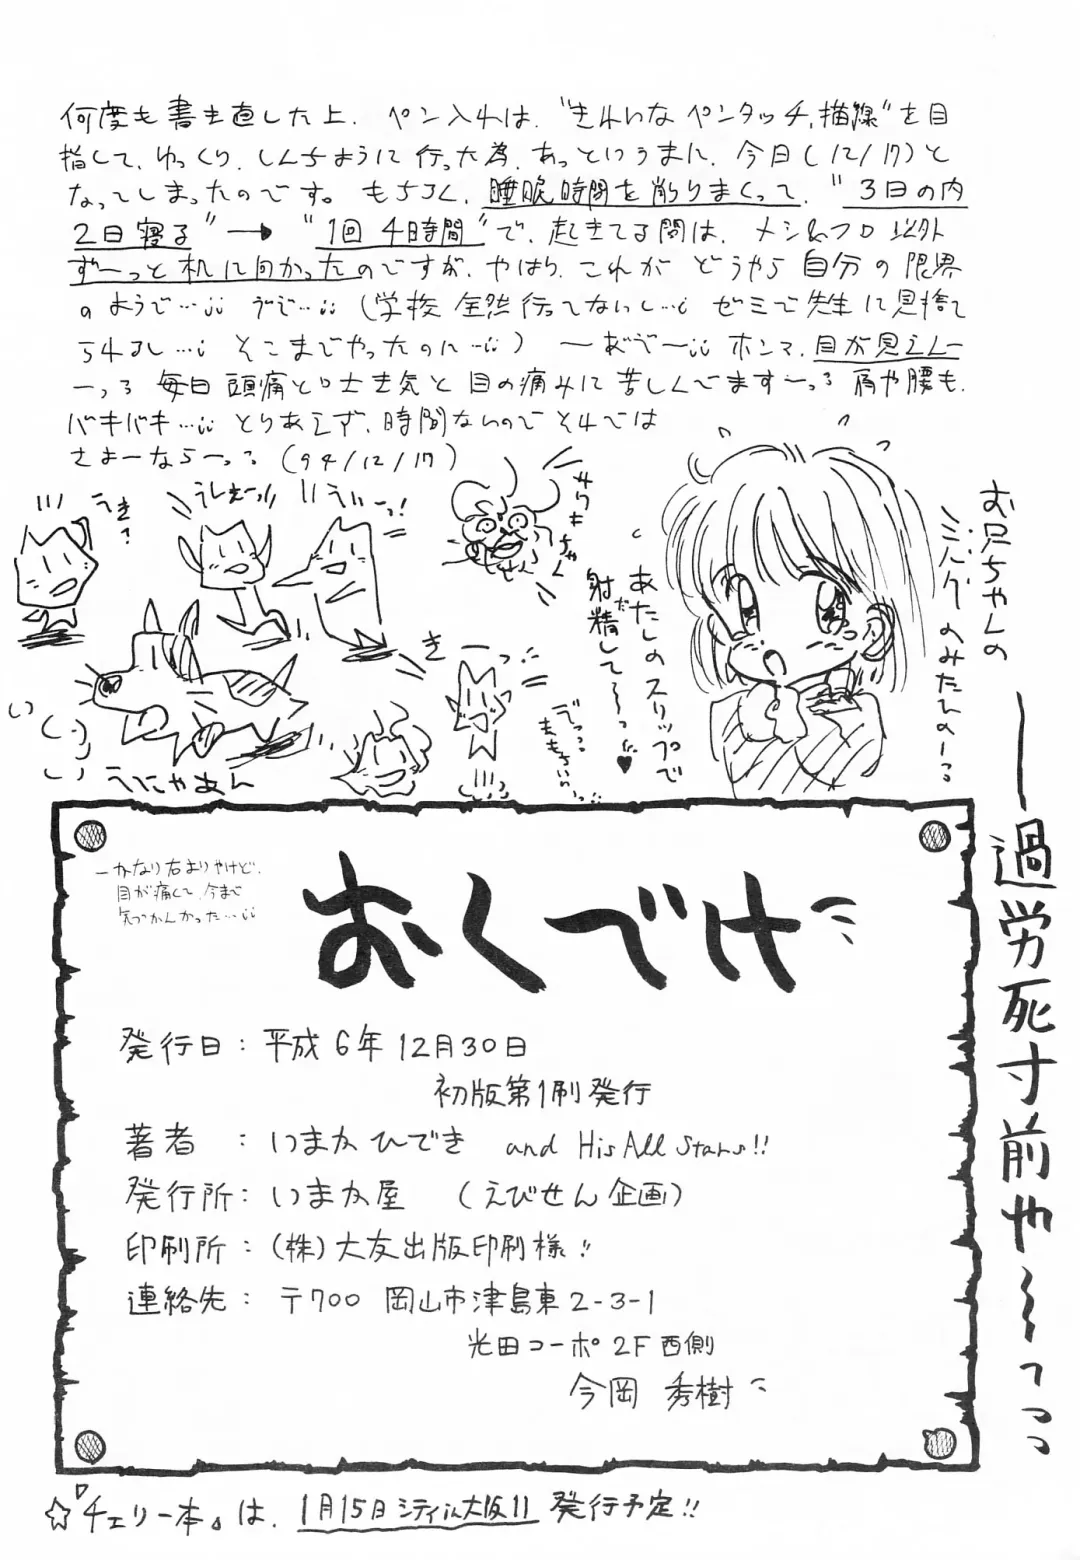 何度も書き直した上、ペン入れは、"きれいなペンタッチ,描線"を目
指して、ゆっくり、しんちょうに行った為、あっというまに、今日(12/17)と
なってしまったのです。もちろく、睡眠時間を削りまくって、"3日の内
2日寝る"→"1回4時間"で、起きてる間は、メシ&フロ以外
ずーっと机に向かったのですが、やはり、これがどうやら自分の限界
のようで…(学校全然行ってないし…ゼミで先生に見捨て
られるし…そこまでやったのに…)ホンマ、目が見えんー
ーっ 毎日頭痛と吐き気と目の痛みに苦しんでますーっ 肩や腰も、
バキバキ… とりあえず、時間ないのでそれでは
さよーならーっ (94/12/17)
うき?
うしぇーっ
うぃーっ!
うにゃあん
過労死寸前や〜〜っっっ
ーかなり右よりやけど、
目が痛くて、今まで
気づかんかった…
おくづけ
発行日:平成6年12月30日
初版第1刷発行
著者:いまおかひでき and His All Stars!!
発行所:いまおか屋(えびせん企画)
印刷所:(株)大友出版印刷様!!
連絡先:〒700 岡山市津島東2-3-1
光田コーポ2F西側
今岡 秀樹
☆『チェリー本』は、1月15日シティin大阪11 発行予定!!